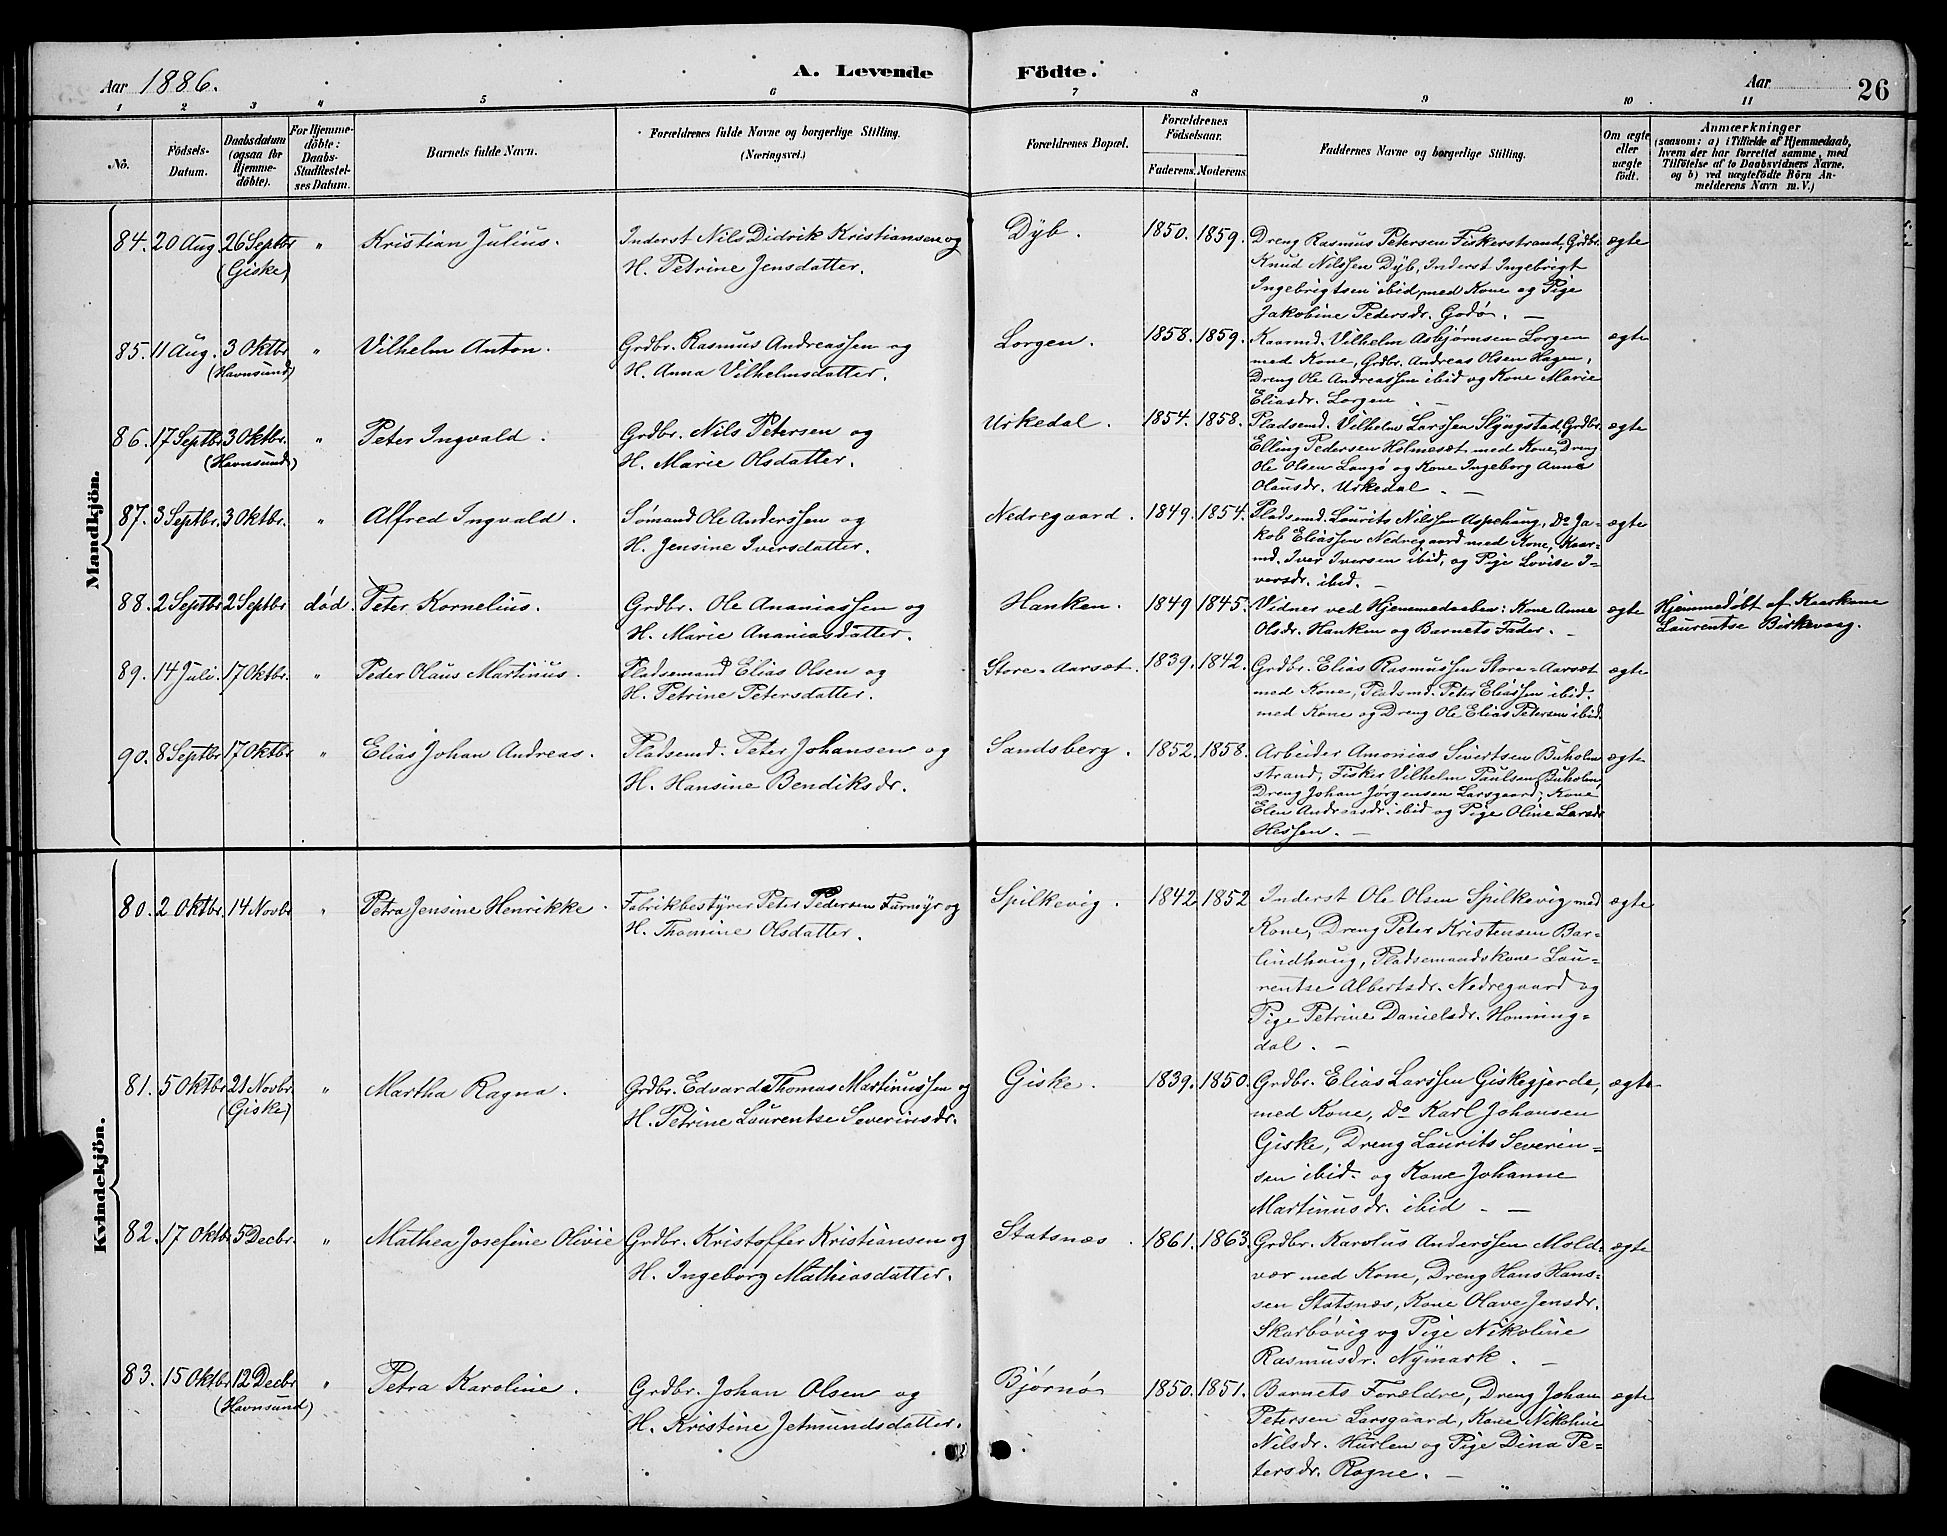 Aar 1886.
A. Levende Födte.
Aar
26
1 2 3 4 5 6 7 8 9 10 11
Nô.
Födsels-
Datum.
Daabsdatum
(ogsaa for
Hjemme-
döbte).
For Hjemme-
döbte:
Daabs-
Stadfestel-
ses Datum.
Barnets fulde Navn.
Forældrenes fulde Navne og borgerlige Stilling.
(Næringsvei.)
Forældrenes Bopæl.
Forældrenes
Födselsaar.
Faderens. Moderens.
Faddernes Navne og borgerlige Stilling.
Om ægte
eller
uægte
födt.
Anmærkninger
(saasom: a) i Tilfælde af Hjemmedaab,
hvem der har forrettet samme, med
Tilföielse af to Daabsvidners Navne,
og b) ved uægtefödte Börn An-
melderens Navn m. V.)
Mandkjön.
84. 20 Aug. 26 Septbr. (Giske) " Kristian Julius.
Inderst Nils Didrik Kristiansen og
H. Petrine Jensdatter.
Dÿb. 1850. 1859.
Dreng Rasmus Petersen Fiskerstrand, Grdbr.
Knud Nilssen Dÿb, Inderst Ingebrigt
Ingebrigtsen ibid, med Kone og Pige
Jakobine Pedersdr. Godø. —
ægte
85. 11 Aug. 3 Oktbr. (Havnsund) " Vilhelm Anton.
Grdbr. Rasmus Andreassen og
H. Anna Vilhelmsdatter.
Lorgen. 1858. 1859.
Kaarmd. Vilhelm Asbjørnsen Lorgen
med Kone, Grdbr. Andreas Olsen Hagen,
Dreng Ole Andreassen ibid og Kone Marie
Eliasdr. Lorgen. —
ægte
86. 17 Septbr. 3 Oktbr. (Havnsund) " Peter Ingvald.
Grdbr. Nils Petersen og
H. Marie Olsdatter.
Urkedal. 1854. 1858.
Pladsemd. Vilhelm Larssen Slÿngstad, Grdbr.
Elling Pedersen Holmesæt med Kone, Dreng
Ole Olsen Langø og Kone Ingeborg Anna
Olausdr. Urkedal. —
ægte
87. 3 Septbr. 3 Oktbr. " Alfred Ingvald.
Sømand Ole Anderssen og
H. Jensine Iversdatter.
Nedregaard. 1849. 1854.
Pladsemd. Laurits Nilssen Aspehaug, Do Ja-
kob Eliassen Nedregaard med Kone, Kaar-
md. Iver Iversen ibid, og Pige Lovise I-
versdr. ibid. —
ægte
88. 2 Septbr 2 Septbr død. Peter Kornelius.
Grdbr. Ole Ananiassen og
H. Marie Ananiasdatter.
Hanken. 1849 1845.
Vidner ved Hjemmedaaben: Kone Anne
Olsdr. Hanken og Barnets Fader. —
ægte
Hjemmedøbt af Kaarkone
Laurentse Birkevaag.
89. 14 Juli. 17 Oktbr. " Peder Olaus Martinus.
Pladsemand Elias Olsen og
H. Petrine Petersdatter.
Store=Aarsæt. 1839. 1842.
Grdbr. Elias Rasmussen Store=Aarsæt
med Kone, Pladsmd. Peter Eliassen ibid.
med Kone og Dreng Ole Elias Petersen ibid.
ægte
90. 8 Septbr 17 Oktbr " Elias Johan Andreas.
Pladsemd. Peter Johansen og
H. Hansine Bendiksdr.
Sandsberg. 1852. 1858.
Arbeider Amonias Sivertsen Buholm
strand, Fisker Vilhelm Paulsen Buholm
Dreng Johan Jørgensen Larsgaard, Kone
Elen Andreasdr. ibid og Pige Oline Larsdr
Hessen. —
ægte
Kvindekjön.
80. 2 Oktbr. 14 Novbr " Petra Jensine Henrikke.
Fabrikbestÿrer Peter Pedersen Furmÿr og
H. Thomine Olsdatter.
Spilkevig. 1842 1852
Inderst Ole Olsen Spilkevig med
Kone, Dreng Peter Kristensen Bar-
lindhaug, Pladsemandskone Lau-
rentse Albertsdr. Nedregaard og
Pige Petrine Danielsdr. Honning-
dal. —
ægte
81. 5 Oktbr. 21 Novbr. (Giske) " Martha Ragna.
Grdbr. Edvard Thomas Martinussen og
H. Petrine Laurentse Severinsdr.
Giske. 1839. 1850.
Grdbr. Elias Larssen Giskegjerde,
med Kone, Do Karl Johansen
Giske, Dreng Laurits Severin-
sen ibid. og Kone Johanne
Martinusdr. ibid. —
ægte
82. 17 Oktbr 5 Decbr. " Mathea Josefine Olivie
Grdbr. Kristoffer Kristiansen og
H. Ingeborg Mathiasdatter.
Statsnæs. 1861. 1863.
Grdbr. Karolus Anderssen Mold-
vær med Kone, Dreng Hans Hans-
sen Statsnæs, Kone Olave Jensdr.
Skarbövig og Pige Nikoline
Rasmusdr. Nÿmark. —
ægte
83. 15 Oktbr 12 Decbr (Havnsund) " Petra Karoline.
Grdbr. Johan Olsen og
H. Kristine Jetmundsdatter.
Bjørnø 1850. 1851.
Barnets Forældre, Dreng Johan
Petersen Larsgaard, Kone Nikoline
Nilsdr. Hurlen og Pige Dina Pe-
tersdr. Rogne. —
ægte